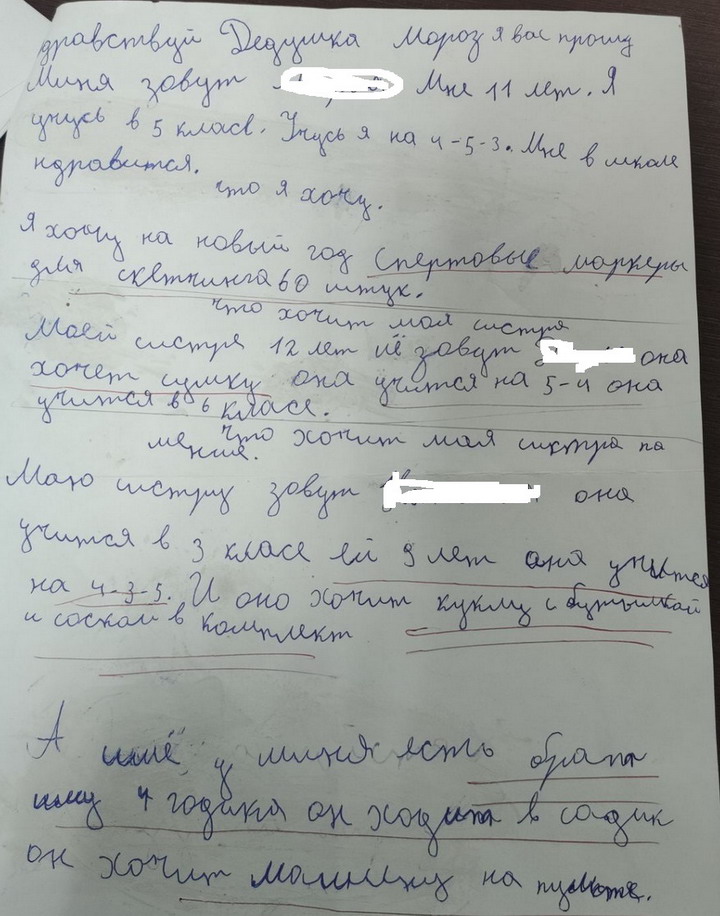 дравствуй Дедушка Мороз я вас прошу
Миня зовут Мне 11 лет. Я
учусь в 5 класе. Учусь я на 4-5-3. Мне в школе
ндравится.
что я хочу.
Я хочу на новый год спертовые маркеры
для скетчинга 60 штук.
что хочит мая систра
Моей систре 12 лет иё зовут она
хочет сумку она учится на 5-4 она
учится в 6 класе.
что хочит мая систра па
меньше.
Маю систру зовут она
учится в 3 класе ей 9 лет она учится
на 4-3-5. И оно хочит куклу с бутылкай
и соскай в комплект
А ишё у миня есть брат
иму 4 годика он ходит в садик
он хочит машинку на пульте.